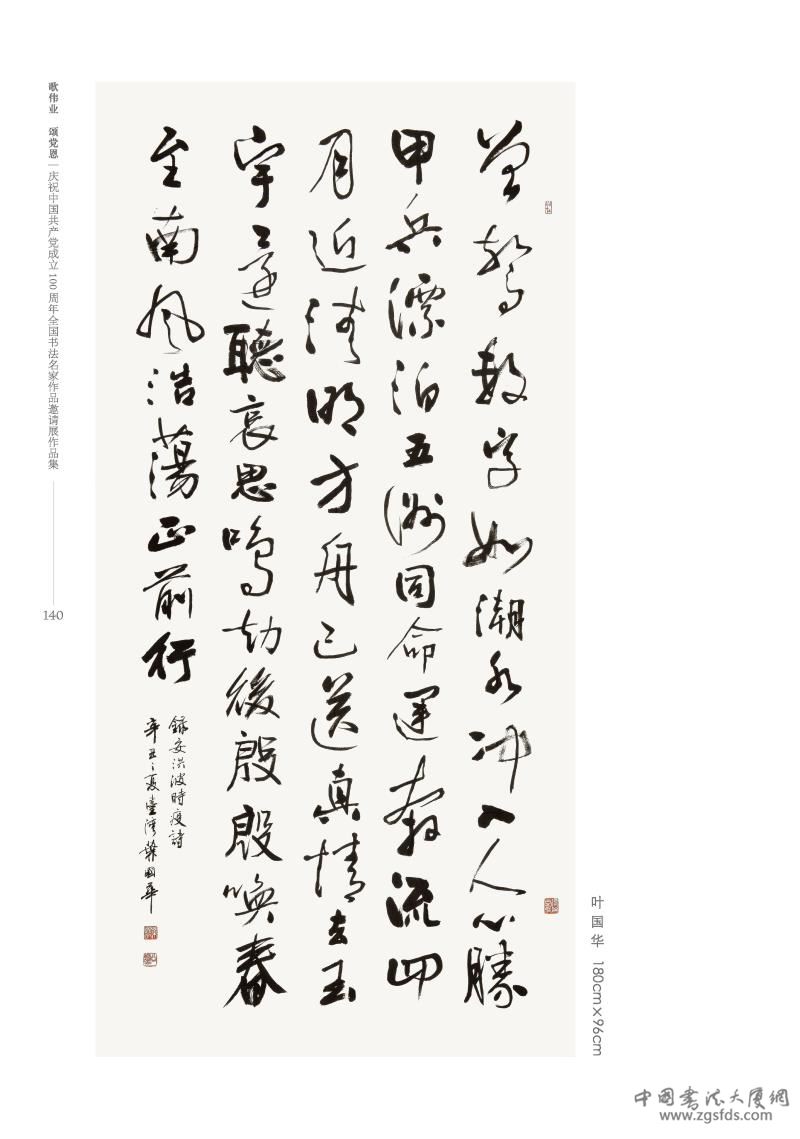 歌伟业 颂党恩 | 庆祝中国共产党成立100周年全国书法名家作品邀请展作品集
140
曾驚數字如潮水冲入人心勝
甲兵漂泊五洲同命運奔流四
月近清明方舟已送真情去玉
宇遥聽哀思鳴劫後殷殷喚春
至南風浩蕩正前行
錄安洪波時疫詩
辛丑之夏臺灣葉國華
叶国华 180cm×96cm
中国书法大厦網
www.zgsfds.com